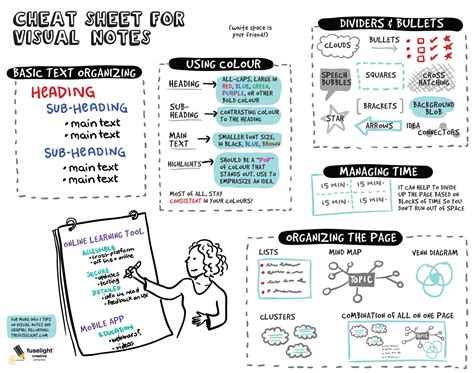 CHEAT SHEET FOR
VISUAL NOTES
(white space is
your friend!)
BASIC TEXT ORGANIZING
HEADING
SUB-HEADING
• main text
• main text
SUB-HEADING
• main text
• main text
USING COLOUR
HEADING
ALL-CAPS, LARGE IN
RED, BLUE, GREEN,
PURPLE, OR OTHER
BOLD COLOUR
SUB-
HEADING
CONTRASTING COLOUR
TO THE HEADING
MAIN
TEXT
SMALLER FONT SIZE,
IN BLACK, BLUE, BROWN
HIGHLIGHTS
SHOULD BE A "POP"
OF COLOUR THAT
STANDS OUT, USE TO
EMPHASIZE AN IDEA.
MOST OF ALL, STAY
CONSISTENT IN YOUR COLOURS!
DIVIDERS & BULLETS
CLOUDS
BULLETS
SPEECH
BUBBLES
SQUARES
CROSS
HATCHING
BRACKETS
BACKGROUND
BLOB
STAR
ARROWS
IDEA
CONNECTORS
MANAGING TIME
15 MIN.
15 MIN.
15 MIN.
15 MIN.
IT CAN HELP TO DIVIDE
UP THE PAGE BASED ON
BLOCKS OF TIME SO YOU
DON'T RUN OUT OF SPACE
ONLINE LEARNING TOOL
ACCESSIBLE
• cross-platform
• off line + online
SECURE
• updates
• testing
DETAILED
• info we need
• feedback on UX
MOBILE APP
EDUCATION
• webinars?
• videos
FOR MORE INFO & TIPS
ON VISUAL NOTES AND
GRAPHIC RECORDING:
THEFUSELIGHT.COM
fuselight
creative
ORGANIZING THE PAGE
LISTS
MIND MAP
VENN DIAGRAM
TOPIC
CLUSTERS
COMBINATION OF ALL ON ONE PAGE
TOPIC